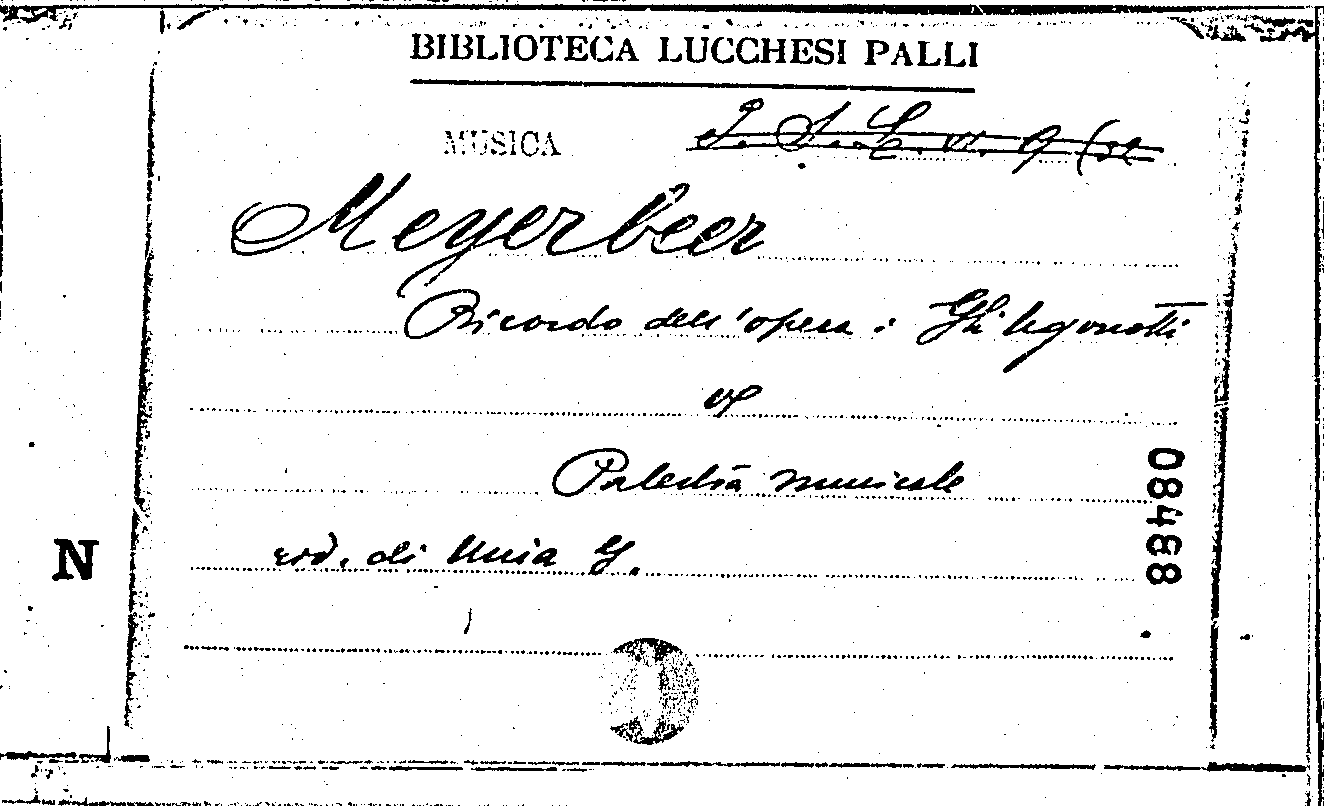 BIBLIOTECA LUCCHESI PALLI
MUSICA
Meyerbeer
Ricordo dell'opera: Gli Ugonotti
Palestra musicale
rid. di Unia G.
08488
N